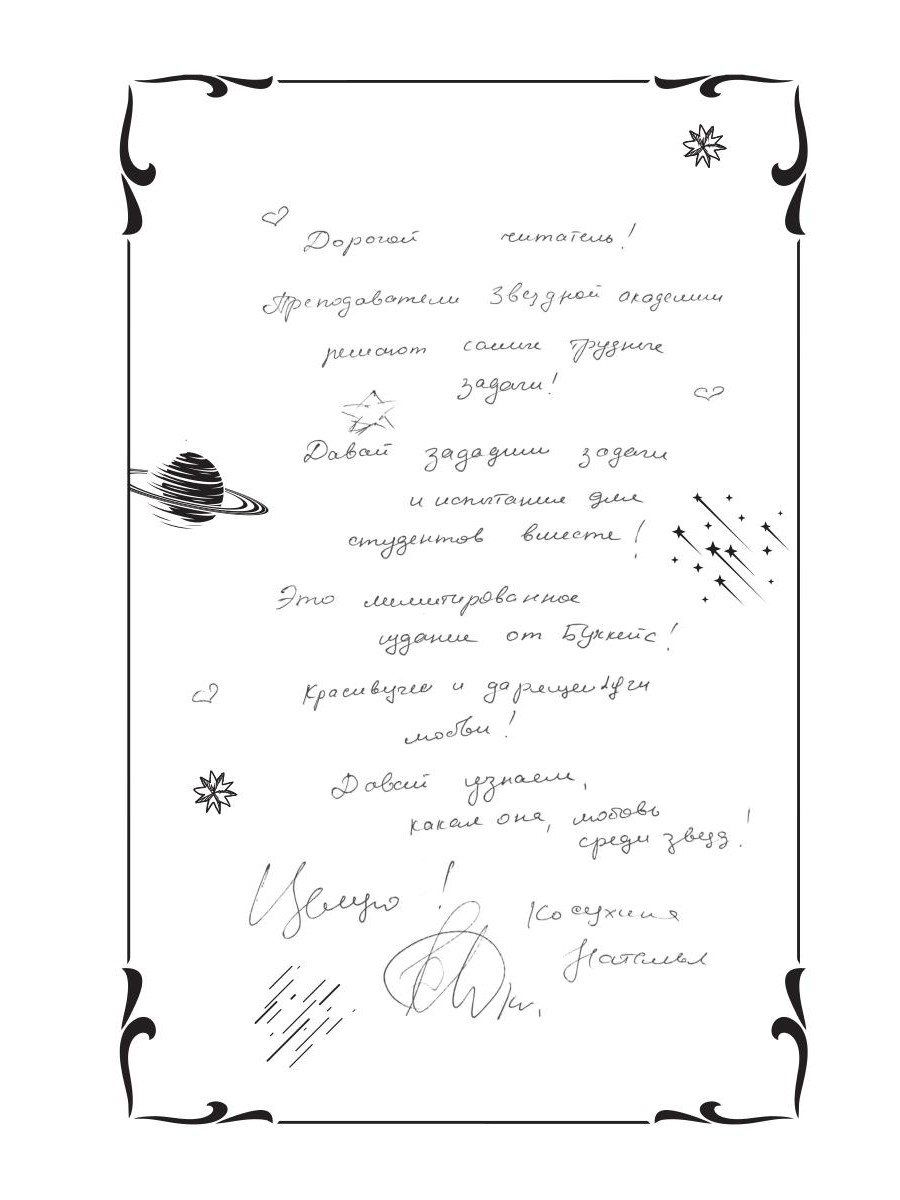 Дорогой читатель!
Преподаватели Звездной академии
решают самые трудные
задачи!
Давай зададим задачи
и испытания для
студентов вместе!
Это лимитированное
издание от Букмейс!
Красивучее и дарящее
любви!
Давай узнаем,
какая она, любовь
среди звезд!
Целую!
Косухина
Наталья